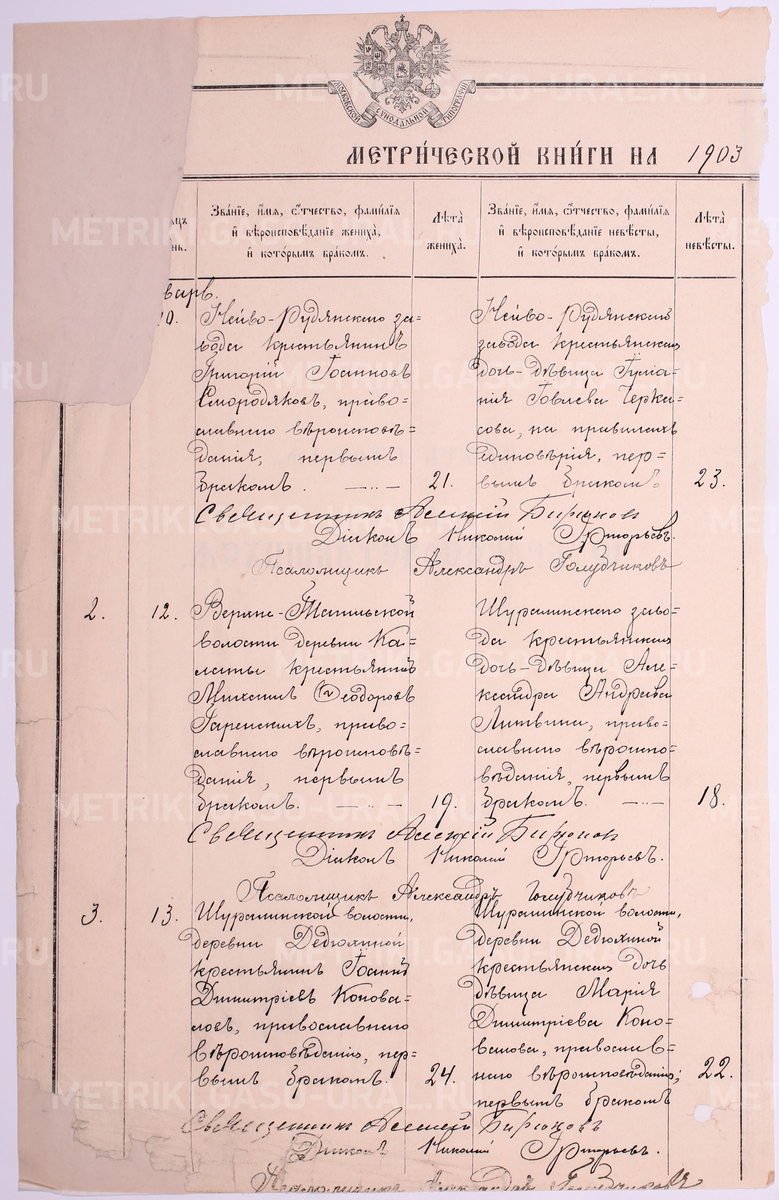 МОСКОВСКОЙ СѴНОДАЛЬНОЙ ТИПОГРАФІИ
МЕТРИ́ЧЕСКОЙ КНИ́ГИ НА 1903
Зва́нїе, и́мѧ, ѻ҆́тчество, фами́лїѧ
и҆ вѣроисповѣ́данїе жениха̀,
и҆ кото́рымъ бра́комъ.
Лѣ́та
жениха̀.
Зва́нїе, и́мѧ, ѻ҆́тчество, фами́лїѧ
и҆ вѣроисповѣ́данїе невѣ́сты,
и҆ кото́рымъ бра́комъ.
Лѣ́та
невѣ́сты.
10.
Нейво-Рудянскаго за=
вода крестьянинъ
Григорій Іоанновъ
Смородяковъ, право=
славнаго вѣроисповѣ=
данія, первымъ
бракомъ.
21.
Нейво-Рудянскаго
завода крестьянская
дочь-дѣвица Іуліа=
нія Іовлева Черка=
сова, на правилахъ
единовѣрія, пер=
вымъ бракомъ.
23.
Священникъ Алексій Бирюков
Діаконъ Николай Григорьевъ.
Псаломщикъ Александръ Голубчиковъ
2.
12.
Верхне-Тагильской
волости деревни Ка=
латы крестьянинъ
Михаилъ Ѳеодоровъ
Гаренскихъ, право=
славнаго вѣроисповѣ=
данія, первымъ
бракомъ.
19.
Шуралинскаго заво=
да крестьянская
дочь-дѣвица Але=
ксандра Андреева
Литвина, право=
славнаго вѣроиспо=
вѣданія, первымъ
бракомъ.
18.
Священникъ Алексій Бирюков
Діаконъ Николай Григорьевъ.
Псаломщикъ Александръ Голубчиковъ
3.
13.
Шуралинской волости,
деревни Дедюхиной
крестьянинъ Іоаннъ
Димитріевъ Конова=
ловъ, православнаго
вѣроисповѣданія, пер=
вымъ бракомъ.
24.
Шуралинской волости,
деревни Дедюхиной
крестьянская дочь
дѣвица Марія
Димитріева Коно=
валова, православ=
наго вѣроисповѣданія;
первымъ бракомъ
22.
Священникъ Алексій Бирюковъ
Діаконъ Николай Григорьевъ.
Псаломщикъ Александръ Голубчиковъ
METRIKI.GASO-URAL.RU